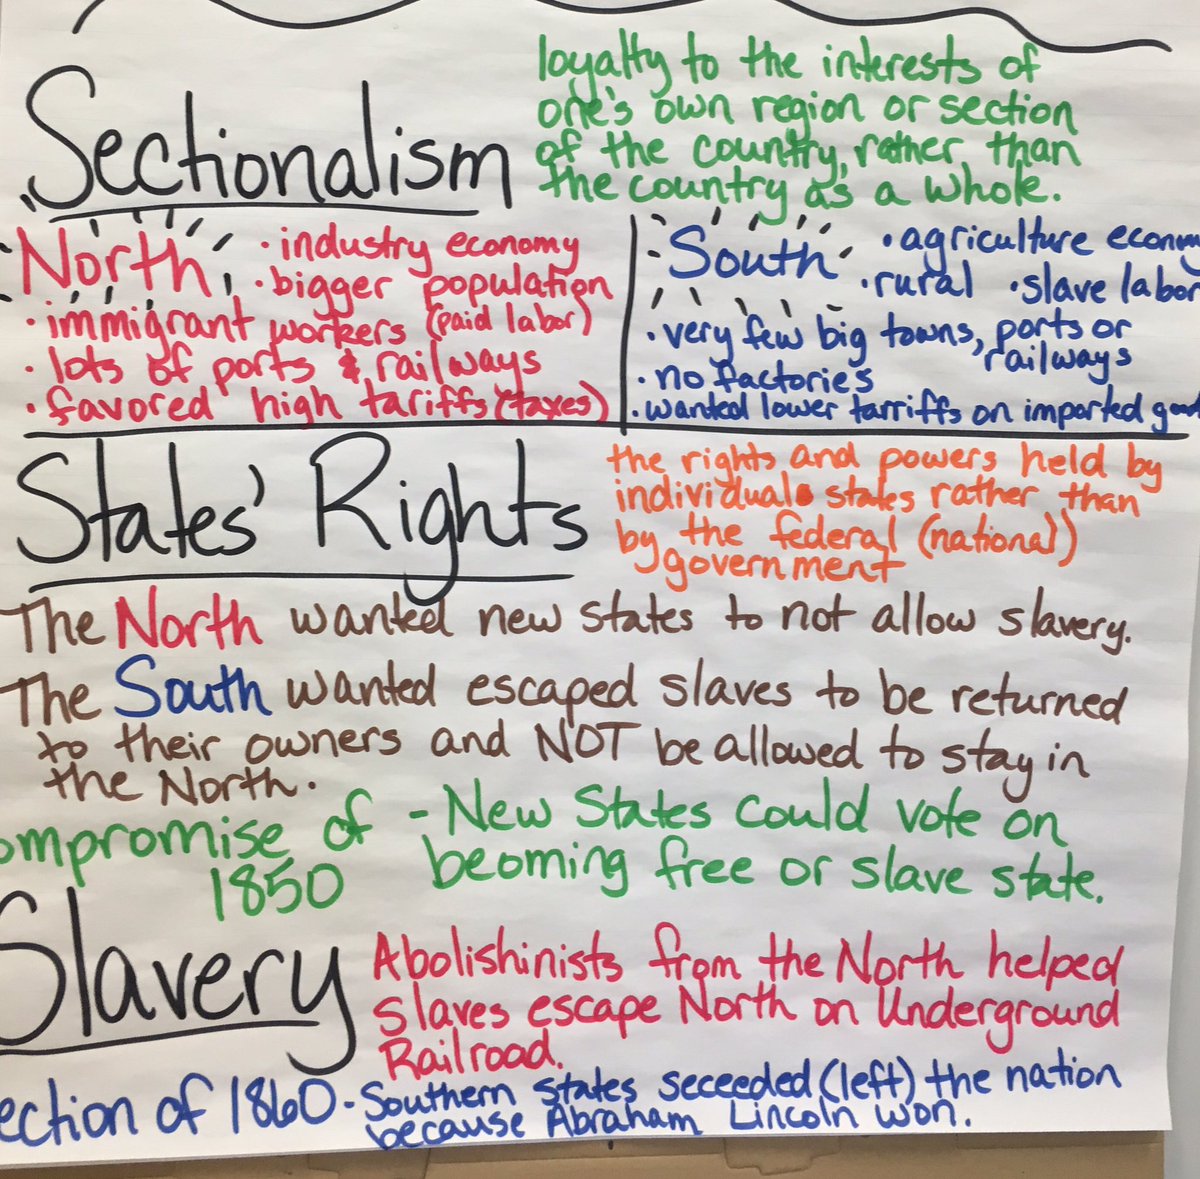 Sectionalism
loyalty to the interests of
one's own region or section
of the country, rather than
the country as a whole.
North
• industry economy
• bigger population
• immigrant workers (paid labor)
• lots of ports & railways
• favored high tariffs (taxes)
South
• agriculture economy
• rural • slave labor
• very few big towns, ports or
railways
• no factories
• wanted lower tarriffs on imported good
States' Rights
the rights and powers held by
individual states rather than
by the federal (national)
government
The North wanted new states to not allow slavery.
The South wanted escaped slaves to be returned
to their owners and NOT be allowed to stay in
the North.
ompromise of
1850
- New States could vote on
beoming free or slave state.
Slavery
Abolishinists from the North helped
slaves escape North on Underground
Railroad.
ection of 1860 - Southern states seceeded (left) the nation
because Abraham Lincoln won.